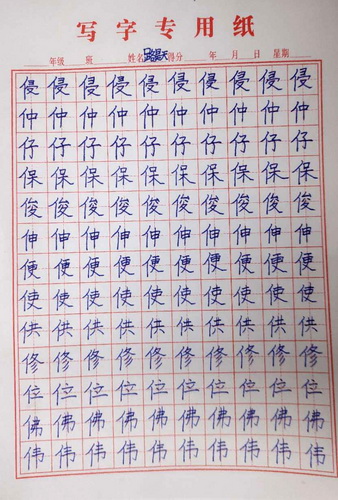 写字专用纸
年级 班 姓名 得分 年 月 日 星期
侵侵侵侵侵侵侵侵侵侵
仲仲仲仲仲仲仲仲仲仲
仔仔仔仔仔仔仔仔仔仔
保保保保保保保保保保
俊俊俊俊俊俊俊俊俊俊
伸伸伸伸伸伸伸伸伸伸
便便便便便便便便便便
使使使使使使使使使使
供供供供供供供供供供
修修修修修修修修修修
位位位位位位位位位位
佛佛佛佛佛佛佛佛佛佛
伟伟伟伟伟伟伟伟伟伟